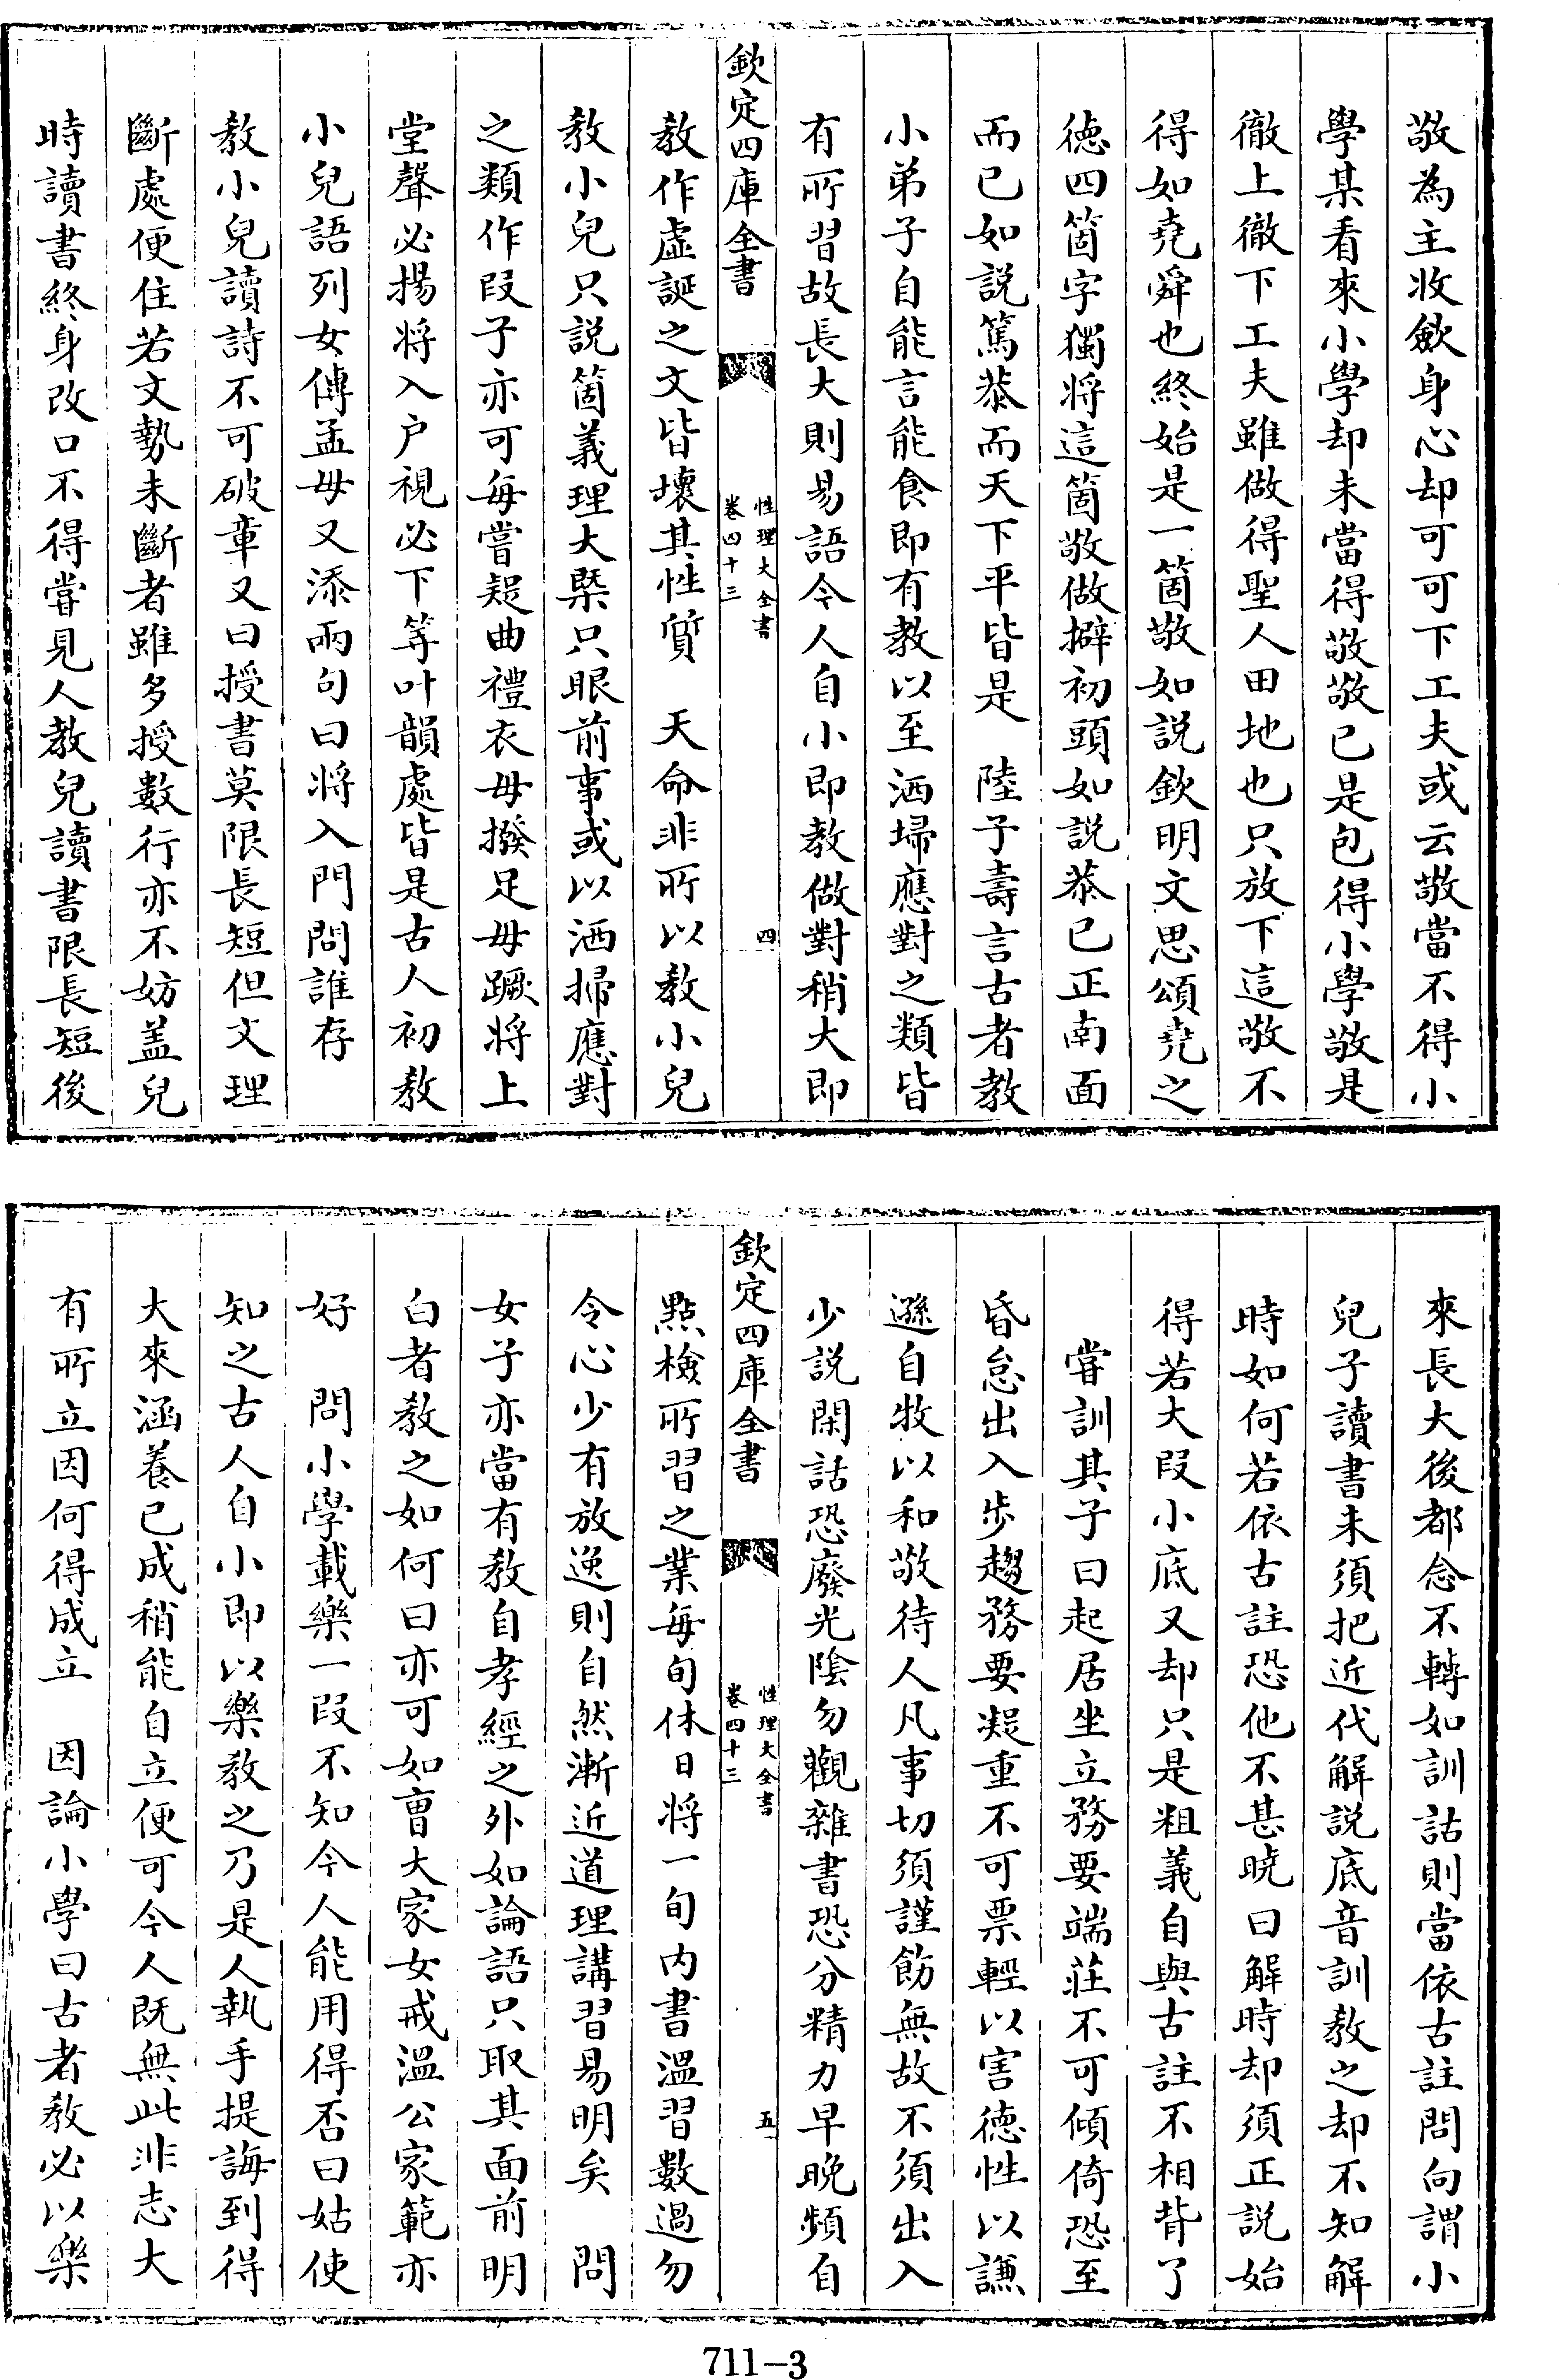 敬為主收斂身心却可可下工夫或云敬當不得小
學某看來小學却未當得敬敬已是包得小學敬是
徹上徹下工夫雖做得聖人田地也只放下這敬不
得如堯舜也終始是一箇敬如說欽明文思頌堯之
德四箇字獨將這箇敬做擗初頭如說恭已正南面
而已如說篤恭而天下平皆是　陸子壽言古者教
小弟子自能言能食即有教以至洒埽應對之類皆
有所習故長大則易語今人自小即教做對稍大即
欽定四庫全書
性理大全書
卷四十三
四
教作虛誕之文皆壞其性質　天命非所以教小兒
教小兒只說箇義理大槩只眼前事或以洒掃應對
之類作段子亦可每嘗疑曲禮衣毋撥足毋蹶將上
堂聲必揚將入户視必下等叶韻處皆是古人初教
小兒語列女傳孟母又添兩句曰將入門問誰存
教小兒讀詩不可破章又曰授書莫限長短但文理
斷處便住若文勢未斷者雖多授數行亦不妨盖兒
時讀書終身改口不得嘗見人教兒讀書限長短後
來長大後都念不轉如訓詁則當依古註問向謂小
兒子讀書未須把近代解說底音訓教之却不知解
時如何若依古註恐他不甚曉曰解時却須正說始
得若大段小底又却只是粗義自與古註不相背了
嘗訓其子曰起居坐立務要端莊不可傾倚恐至
昏怠出入步趨務要凝重不可票輕以害德性以謙
遜自牧以和敬待人凡事切須謹飭無故不須出入
少說閑話恐廢光陰勿觀雜書恐分精力早晚頻自
欽定四庫全書
性理大全書
卷四十三
五
點檢所習之業每旬休日將一旬内書溫習數過勿
令心少有放逸則自然漸近道理講習易明矣　問
女子亦當有教自孝經之外如論語只取其面前明
白者教之如何曰亦可如曹大家女戒溫公家範亦
好　問小學載樂一段不知今人能用得否曰姑使
知之古人自小即以樂教之乃是人執手提誨到得
大來涵養已成稍能自立便可今人既無此非志大
有所立因何得成立　因論小學曰古者教必以樂
711-3